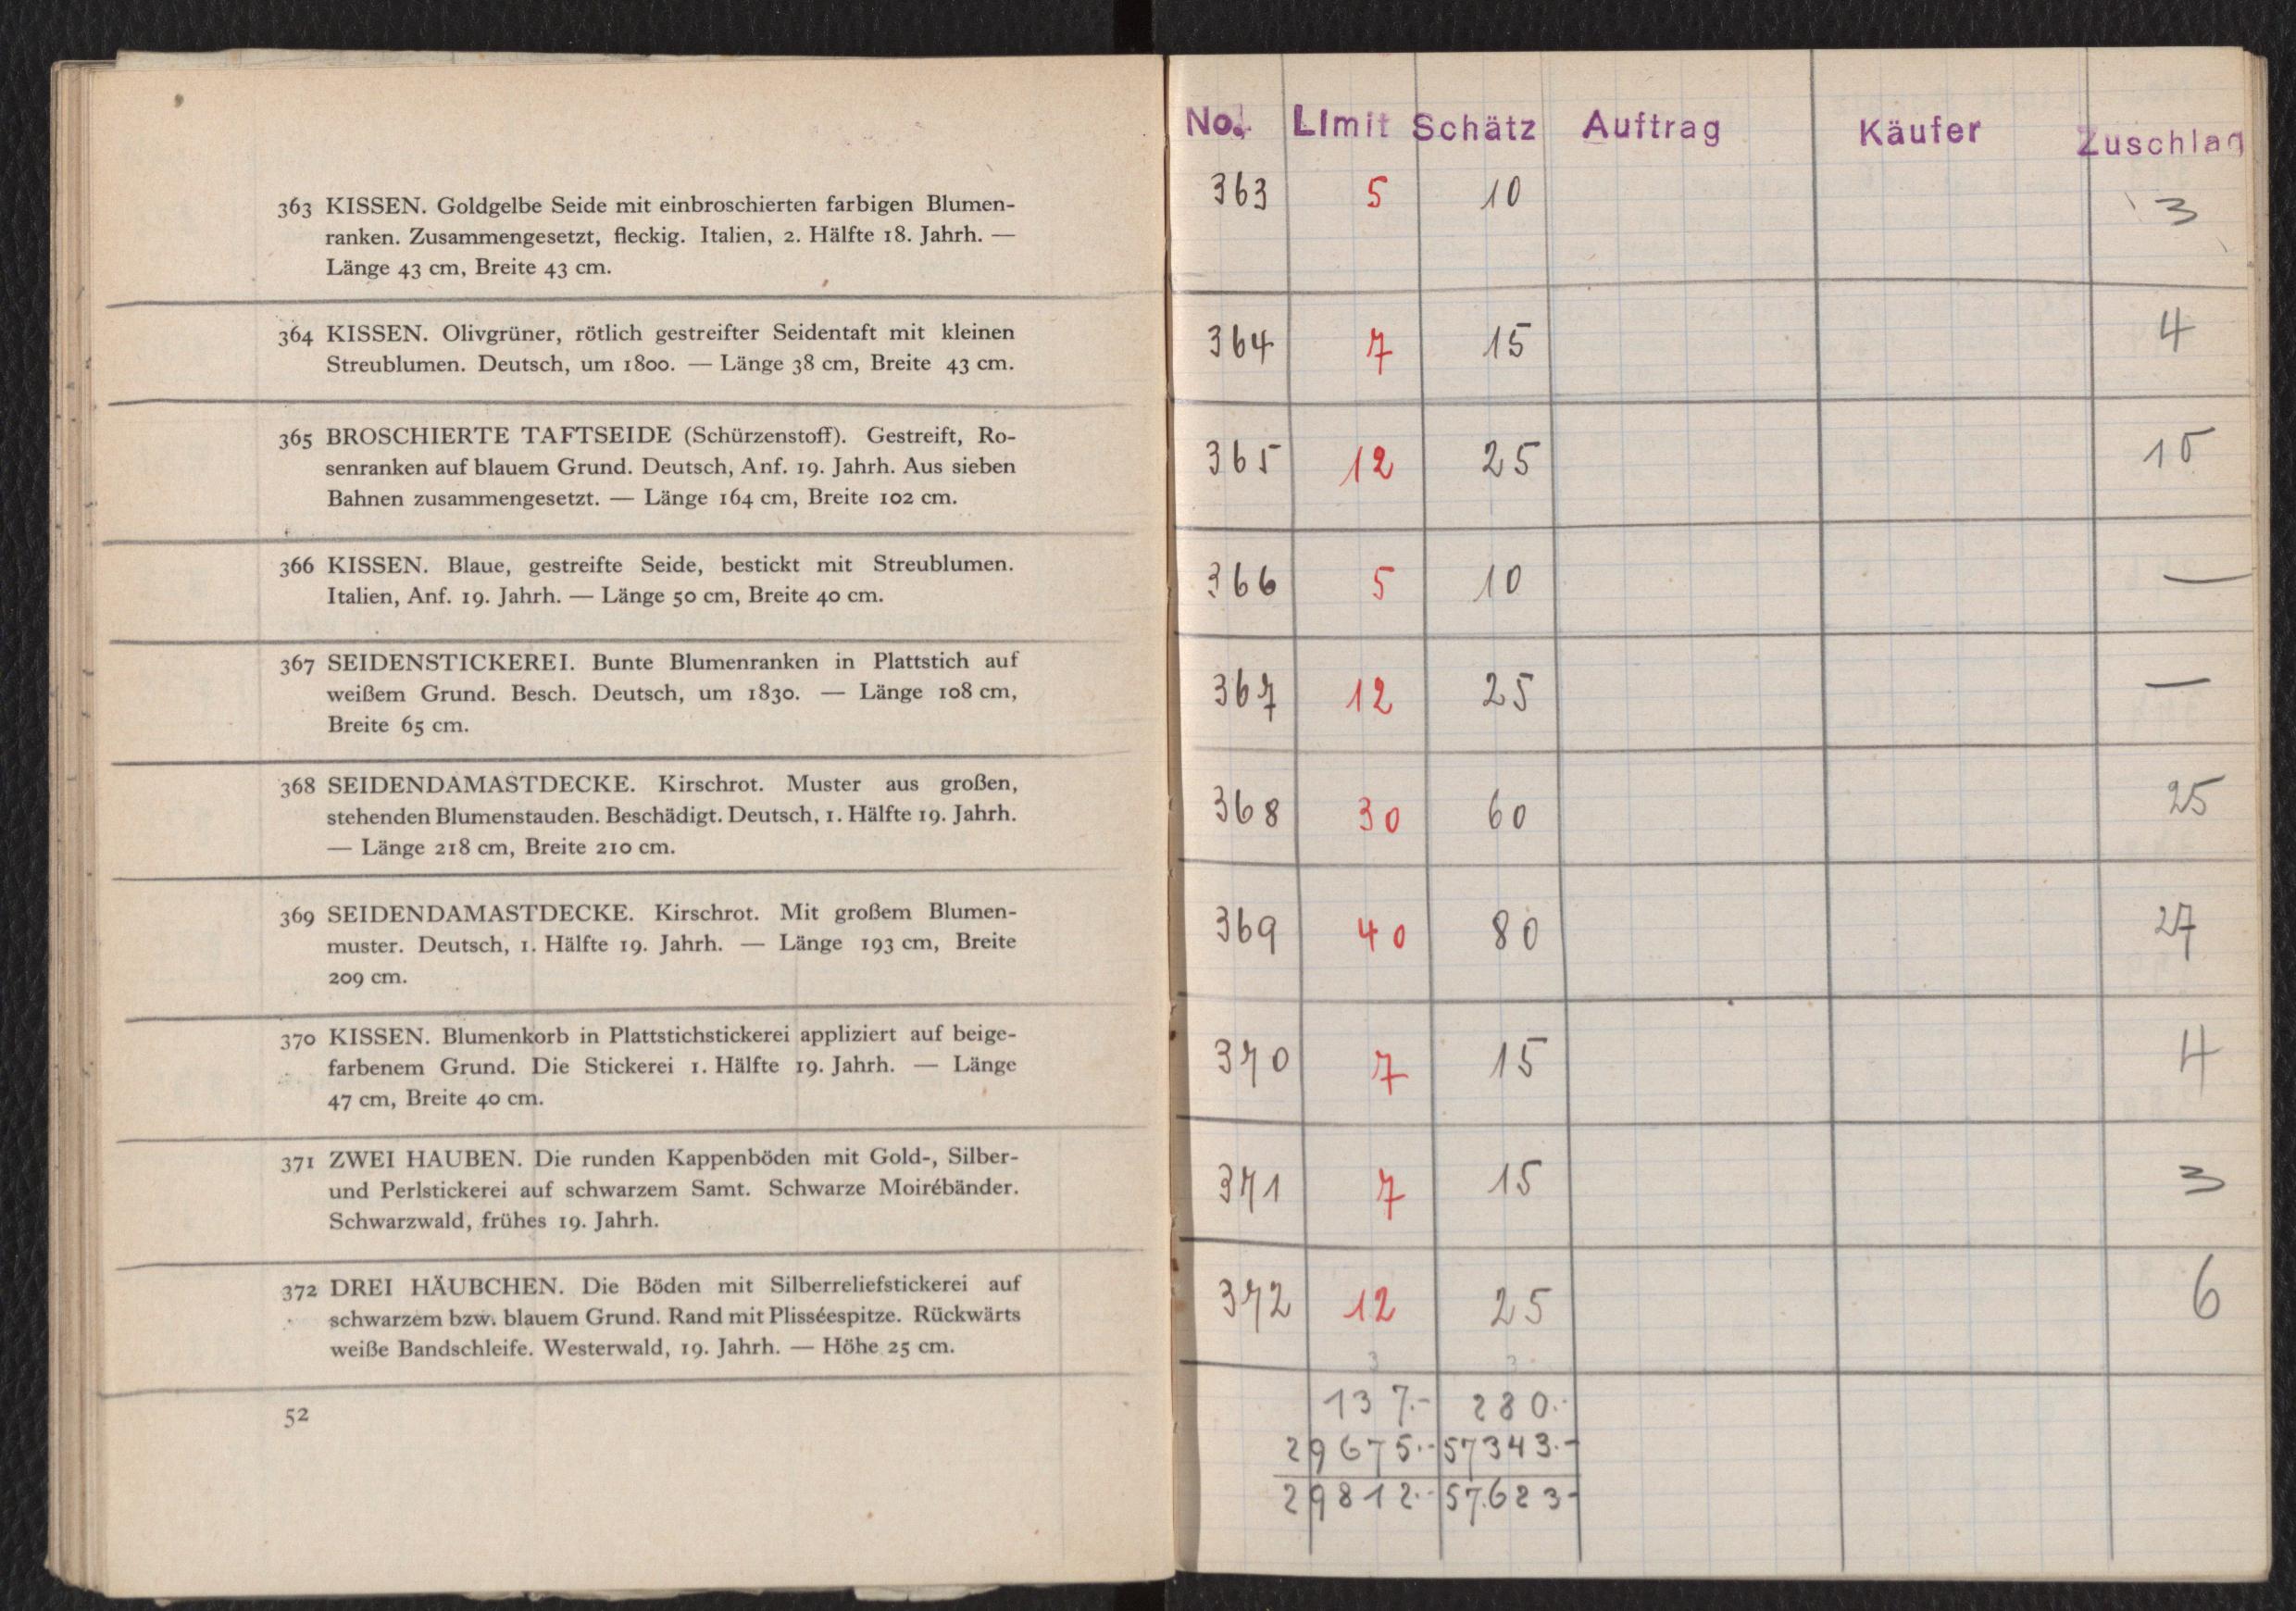 363 KISSEN. Goldgelbe Seide mit einbroschierten farbigen Blumen-
ranken. Zusammengesetzt, fleckig. Italien, 2. Hälfte 18. Jahrh. —
Länge 43 cm, Breite 43 cm.
364 KISSEN. Olivgrüner, rötlich gestreifter Seidentaft mit kleinen
Streublumen. Deutsch, um 1800. — Länge 38 cm, Breite 43 cm.
365 BROSCHIERTE TAFTSEIDE (Schürzenstoff). Gestreift, Ro-
senranken auf blauem Grund. Deutsch, Anf. 19. Jahrh. Aus sieben
Bahnen zusammengesetzt. — Länge 164 cm, Breite 102 cm.
366 KISSEN. Blaue, gestreifte Seide, bestickt mit Streublumen.
Italien, Anf. 19. Jahrh. — Länge 50 cm, Breite 40 cm.
367 SEIDENSTICKEREI. Bunte Blumenranken in Plattstich auf
weißem Grund. Besch. Deutsch, um 1830. — Länge 108 cm,
Breite 65 cm.
368 SEIDENDAMASTDECKE. Kirschrot. Muster aus großen,
stehenden Blumenstauden. Beschädigt. Deutsch, 1. Hälfte 19. Jahrh.
— Länge 218 cm, Breite 210 cm.
369 SEIDENDAMASTDECKE. Kirschrot. Mit großem Blumen-
muster. Deutsch, 1. Hälfte 19. Jahrh. — Länge 193 cm, Breite
209 cm.
370 KISSEN. Blumenkorb in Plattstichstickerei appliziert auf beige-
farbenem Grund. Die Stickerei 1. Hälfte 19. Jahrh. — Länge
47 cm, Breite 40 cm.
371 ZWEI HAUBEN. Die runden Kappenböden mit Gold-, Silber-
und Perlstickerei auf schwarzem Samt. Schwarze Moirébänder.
Schwarzwald, frühes 19. Jahrh.
372 DREI HÄUBCHEN. Die Böden mit Silberreliefstickerei auf
schwarzem bzw. blauem Grund. Rand mit Plisséespitze. Rückwärts
weiße Bandschleife. Westerwald, 19. Jahrh. — Höhe 25 cm.
52
No. Limit Schätz Auftrag Käufer Zuschlag
363 5 10 3
364 7 15 4
365 12 25 15
366 5 10 —
367 12 25 —
368 30 60 25
369 40 80 27
370 7 15 4
371 7 15 3
372 12 25 6
137.- 280.-
29675.- 57343.-
29812.- 57.623-